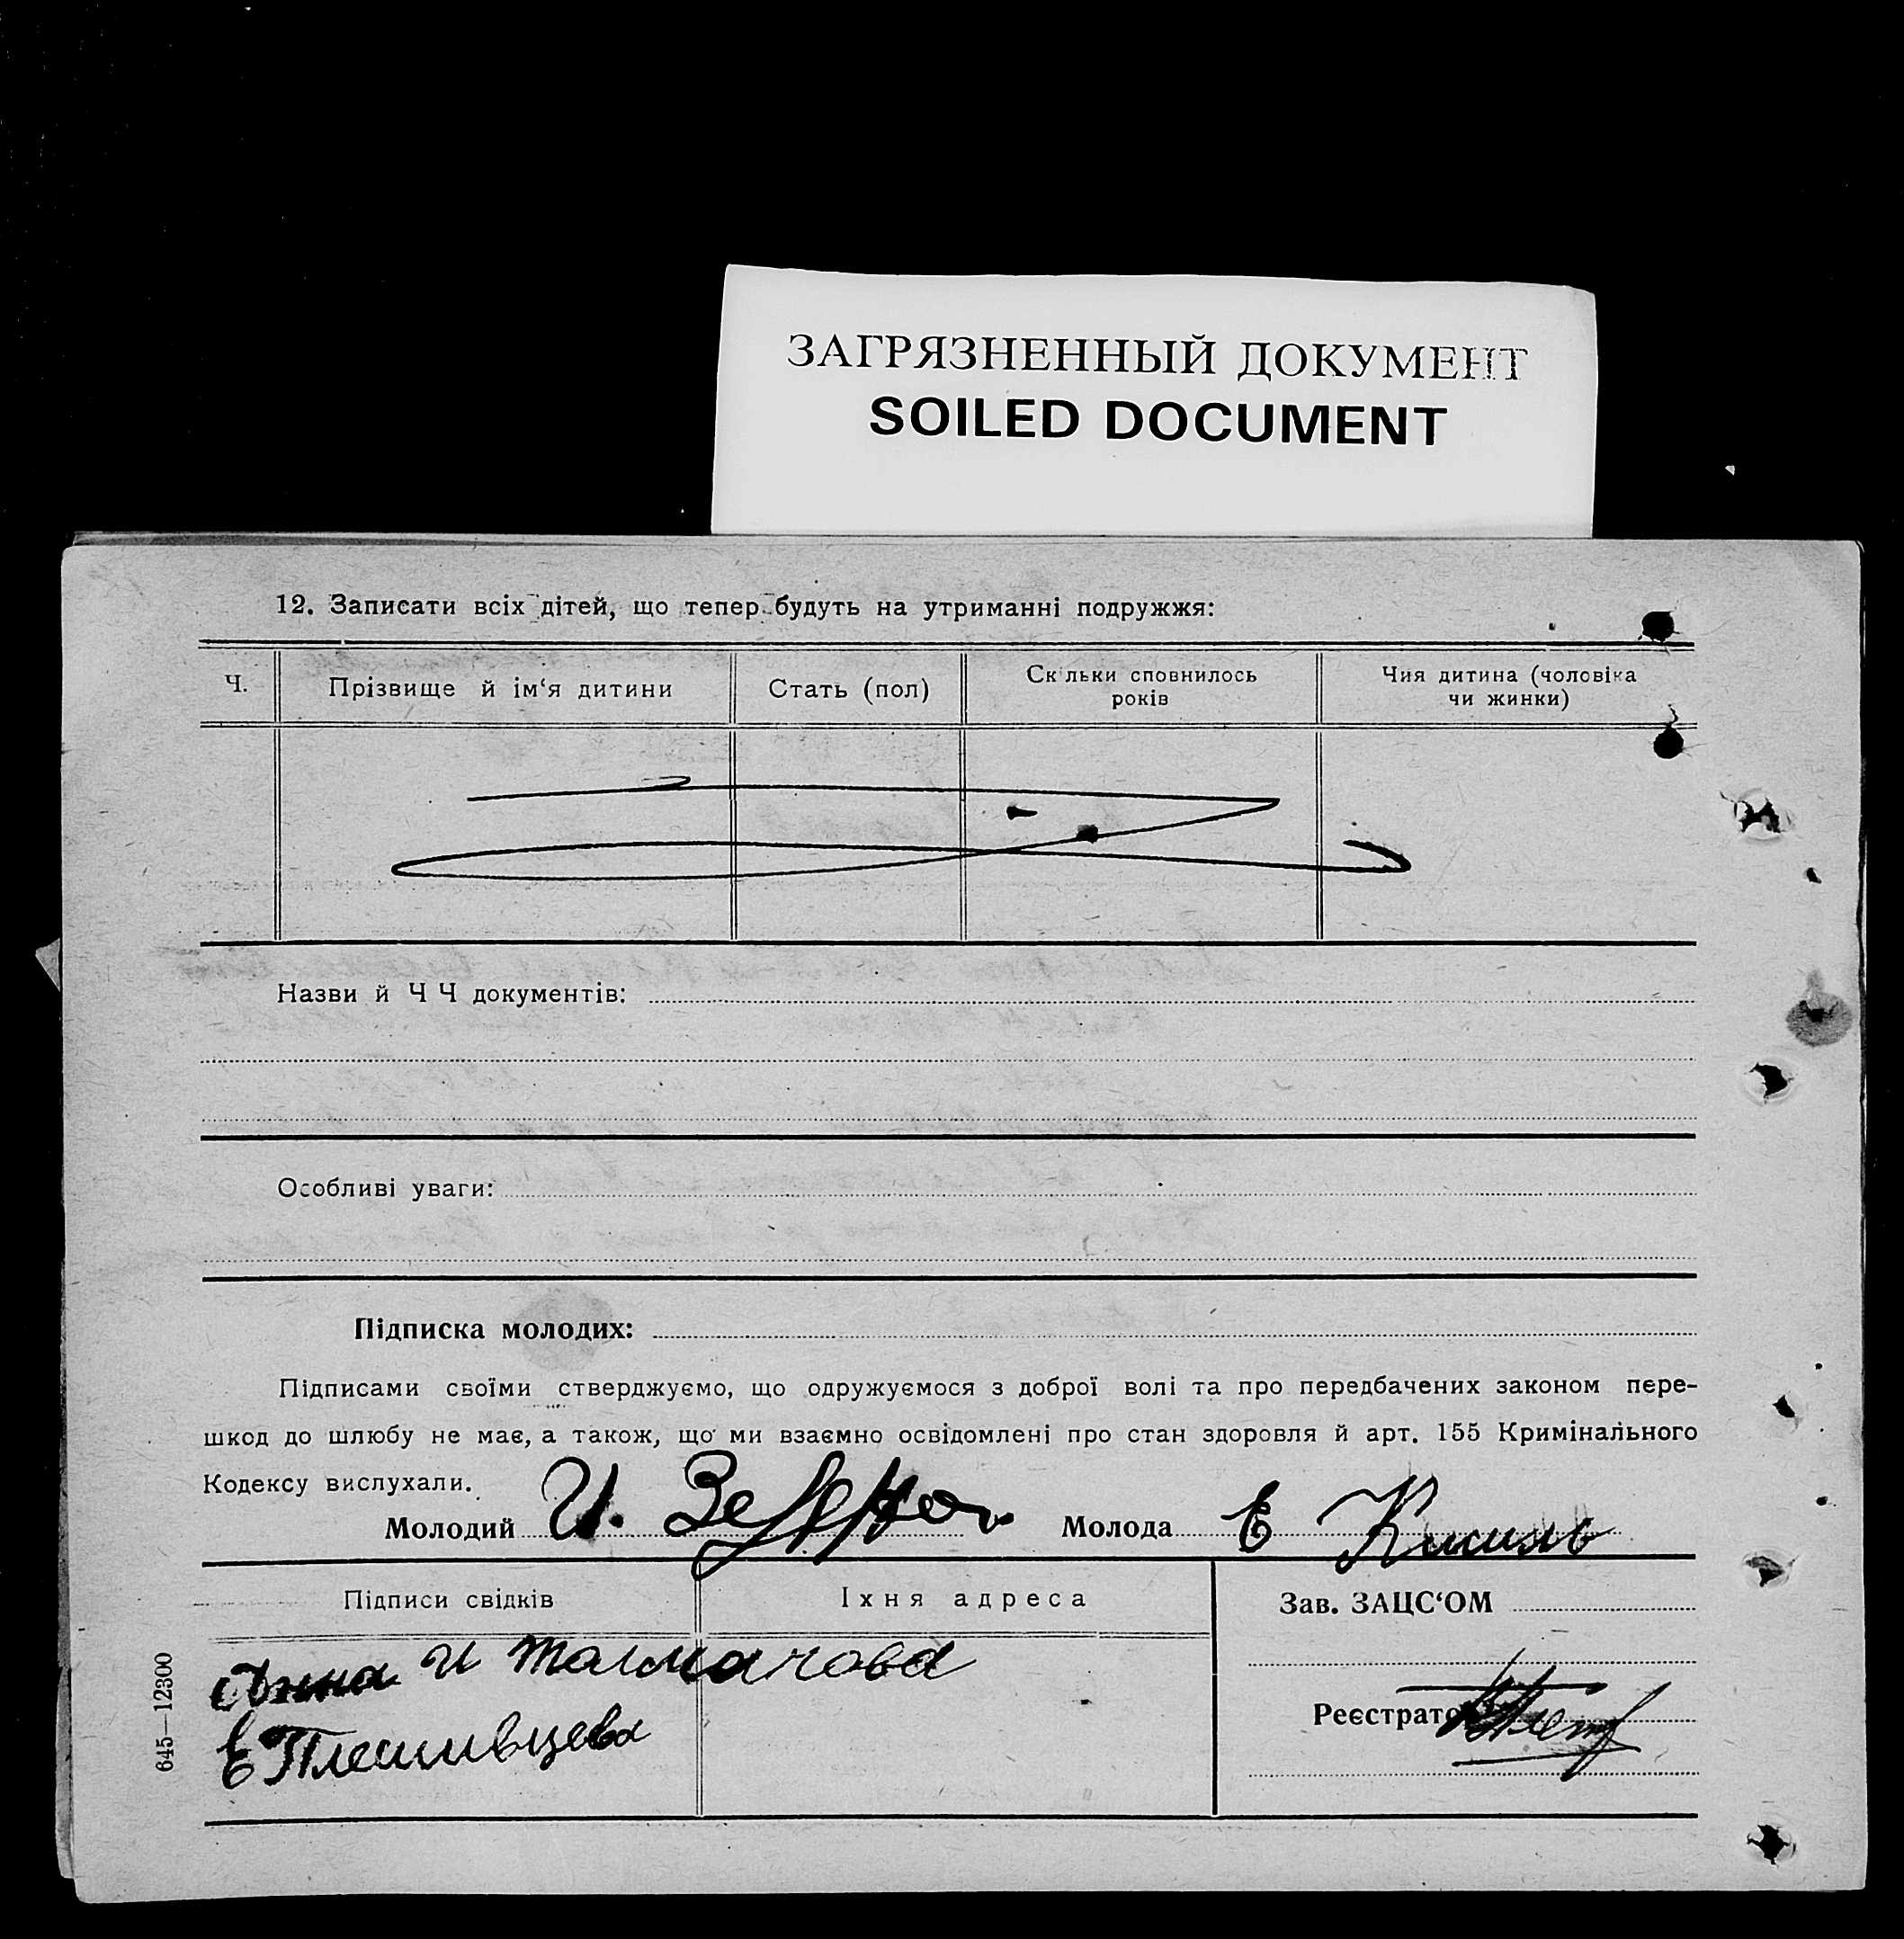 ЗАГРЯЗНЕННЫЙ ДОКУМЕНТ
SOILED DOCUMENT
12. Записати всіх дітей, що тепер будуть на утриманні подружжя:
Ч.
Прізвище й ім‘я дитини
Стать (пол)
Скільки сповнилось
років
Чия дитина (чоловіка
чи жинки)
Назви й Ч Ч документів:
Особливі уваги:
Підписка молодих:
Підписами своїми стверджуємо, що одружуємося з доброї волі та про передбачених законом пере-
шкод до шлюбу не має, а також, що ми взаємно освідомлені про стан здоровля й арт. 155 Кримінального
Кодексу вислухали.
Молодий И.
Молода Е Кисиль
Підписи свідків
Їхня адреса
Зав. ЗАЦС‘ОМ
Анна И Толмачова
Е Плешивцева
Реєстратор
645—12300